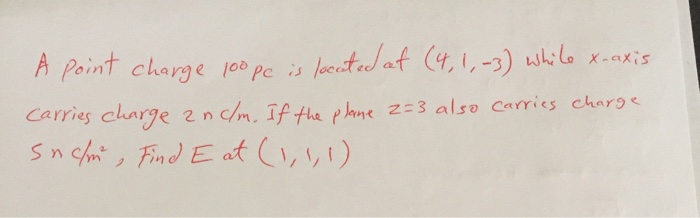 A point charge 100 pc is located at (4,1,-3) while x-axis
carries charge 2 n c/m. If the plane z=3 also carries charge
5 n c/m², Find E at (1,1,1)